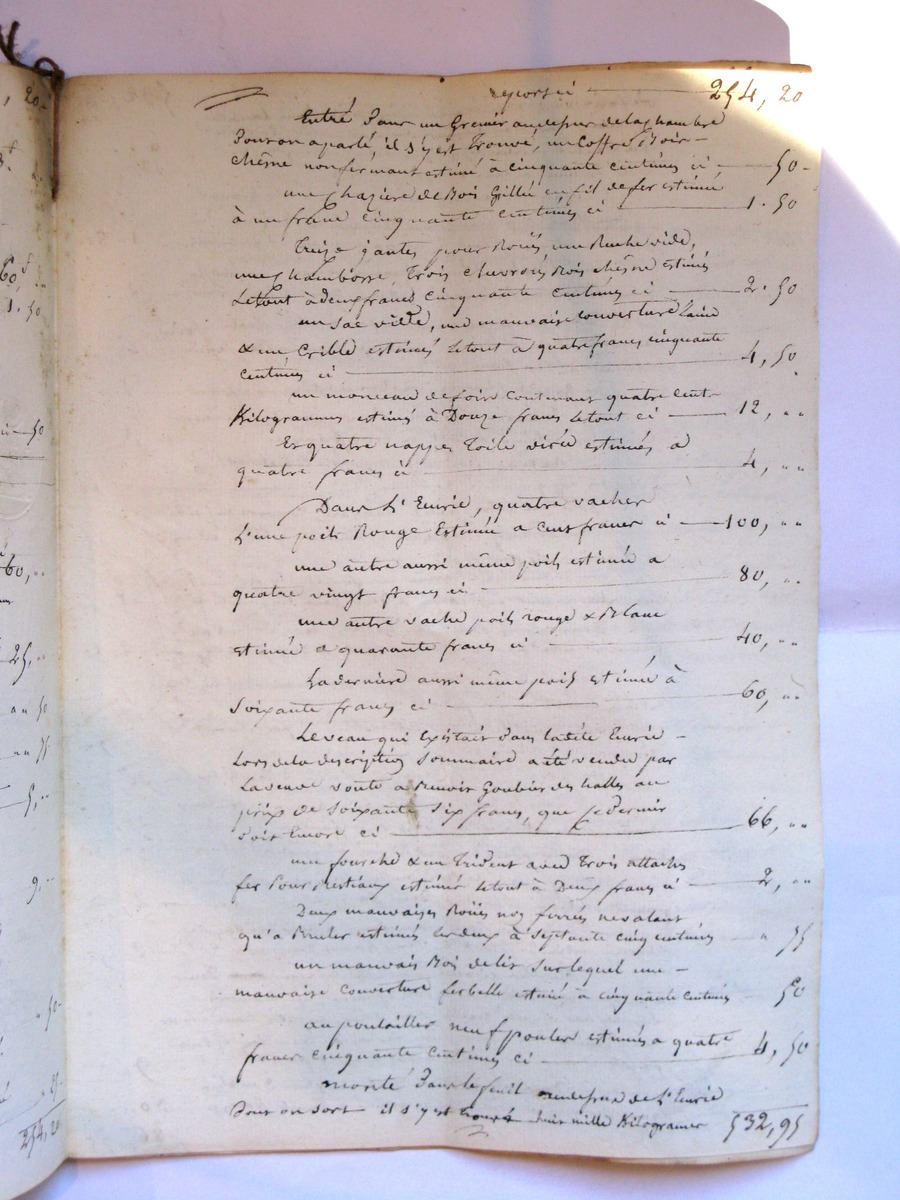 report ci 254, 20
Entré dans un Grenier au dessus de la chambre
Dont on a parlé, il s'y est Trouvé, un Coffre Bois
chêne non fermant estimé à cinquante centimes ci 50
une chazière de Bois Grillé en fil de fer estimé
à un franc cinquante centimes ci 1. 50
Treize jantes pour Roües, une Ruche vide,
une, Trois chevrons Bois chêne estimés
Le tout à deux francs cinquante centimes ci 2. 50
un sac vide, une mauvaise couverture laine
& un Crible estimés le tout à quatre francs cinquante
centimes ci 4, 50
un monceau de foin contenant quatre cent
Kilogrammes estimés à Douze francs le tout ci 12, ..
Et quatre nappes Toile estimées a
quatre francs ci 4, ..
Dans L'Ecurie, quatre vaches
L'une poils Rouge Estimée a Cent francs ci 100, ..
une autre aussi même poils estimée a
quatre vingt francs ci 80, ..
une autre vache poils rouge & Blanc
estimée a quarante francs ci 40, ..
La dernière aussi même poils estimée à
Soixante francs ci 60, ..
Le veau qui Existait dans ladite Ecurie
Lors de la description Sommaire a été vendu par
La veuve a Benoit des halles au
prix de Soixante Six francs, que ce Dernier
Doit Encore ci 66, ..
un fourche & un Trident avec Trois attaches
fer Pour Bestiaux estimés le tout à Deux francs ci 2, ..
Deux mauvaises Roües non ferrées ne valant
qu'a Bruler estimées les deux à Septante cinq centimes " 75
un mauvais Bois de lit sur lequel une
mauvaise couverture estimé à cinquante Centimes 50
au poulailler neuf poules estimées a quatre
francs cinquante Centimes ci 4, 50
monté Dans le fenil au dessus de L'Ecurie
Dont on sort il s'y est trouvé mille Kilogrammes 532, 95
254, 20